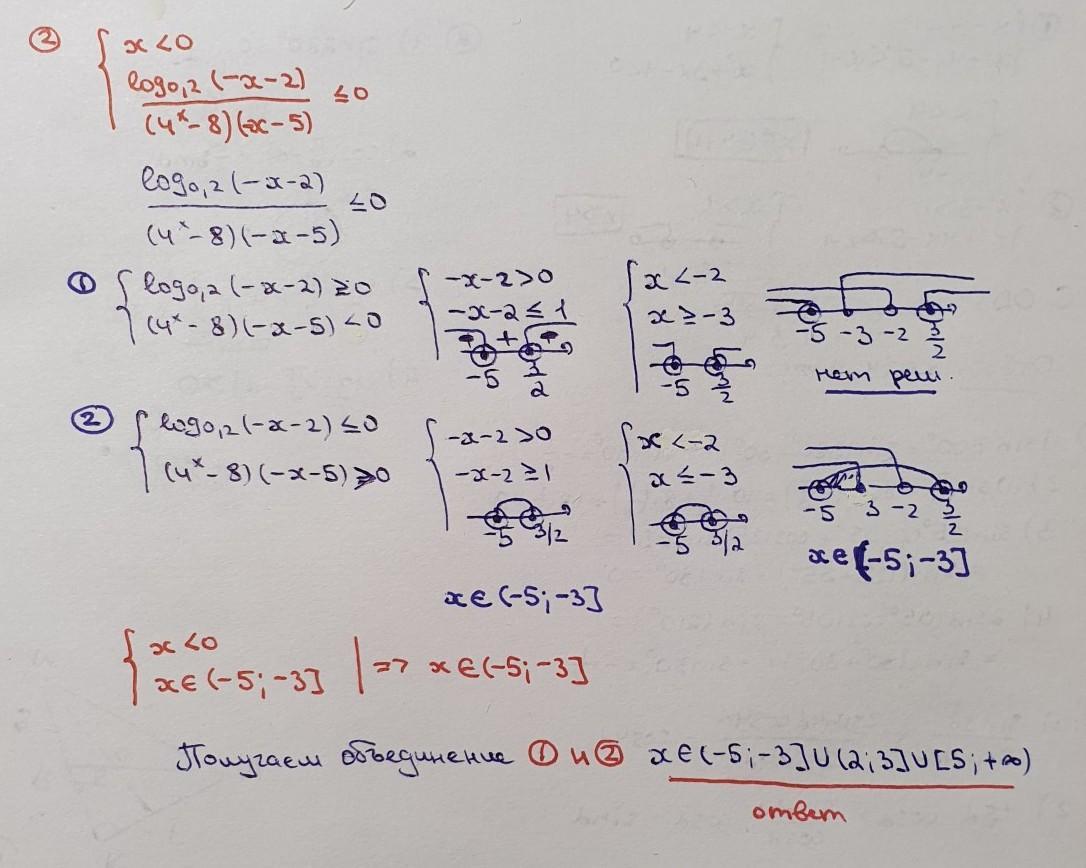 ② { x < 0
log₀,₂(-x-2) / (4ˣ-8)(-x-5) ≤ 0
log₀,₂(-x-2) / (4ˣ-8)(-x-5) ≤ 0
① { log₀,₂(-x-2) ≥ 0 { -x-2 > 0 { x < -2
(4ˣ-8)(-x-5) < 0 -x-2 ≤ 1 x ≥ -3 -5 -3 -2 3/2
+ -5 3/2 -5 3/2 нет реш.
② { log₀,₂(-x-2) ≤ 0 { -x-2 > 0 { x < -2
(4ˣ-8)(-x-5) > 0 -x-2 ≥ 1 x ≤ -3 -5 3 -2 3/2
-5 3/2 -5 3/2 x ∈ (-5; -3]
x ∈ (-5; -3]
{ x < 0
x ∈ (-5; -3] | => x ∈ (-5; -3]
Получаем объединение ① и ② x ∈ (-5; -3] ∪ (2; 3] ∪ [5; +∞)
ответ